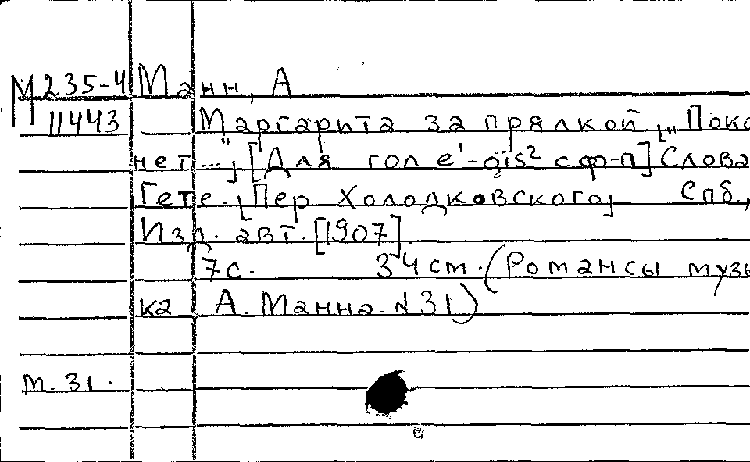 М 235-4 Манн, А
11443 Маргарита за прялкой „Поко
нет..." [Для гол e'-gis² с ф-п] Слова
Гете. [Пер Холодковского] Спб.,
Изд. авт. [1907].
7с. 34см. (Романсы музы
ка А. Манна. № 31)
м. 31.